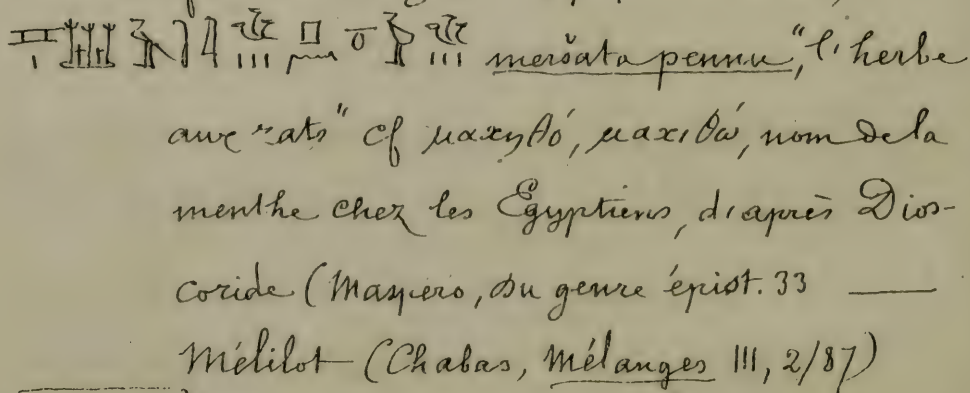 meršata pennu, "l'herbe
aux rats" cf μαχηθό, μαχιθώ, nom de la
menthe chez les Égyptiens, d'après Dios-
coride (Maspero, Du genre épist. 33 ——
Mélilot (Chabas, Mélanges III, 2/87)